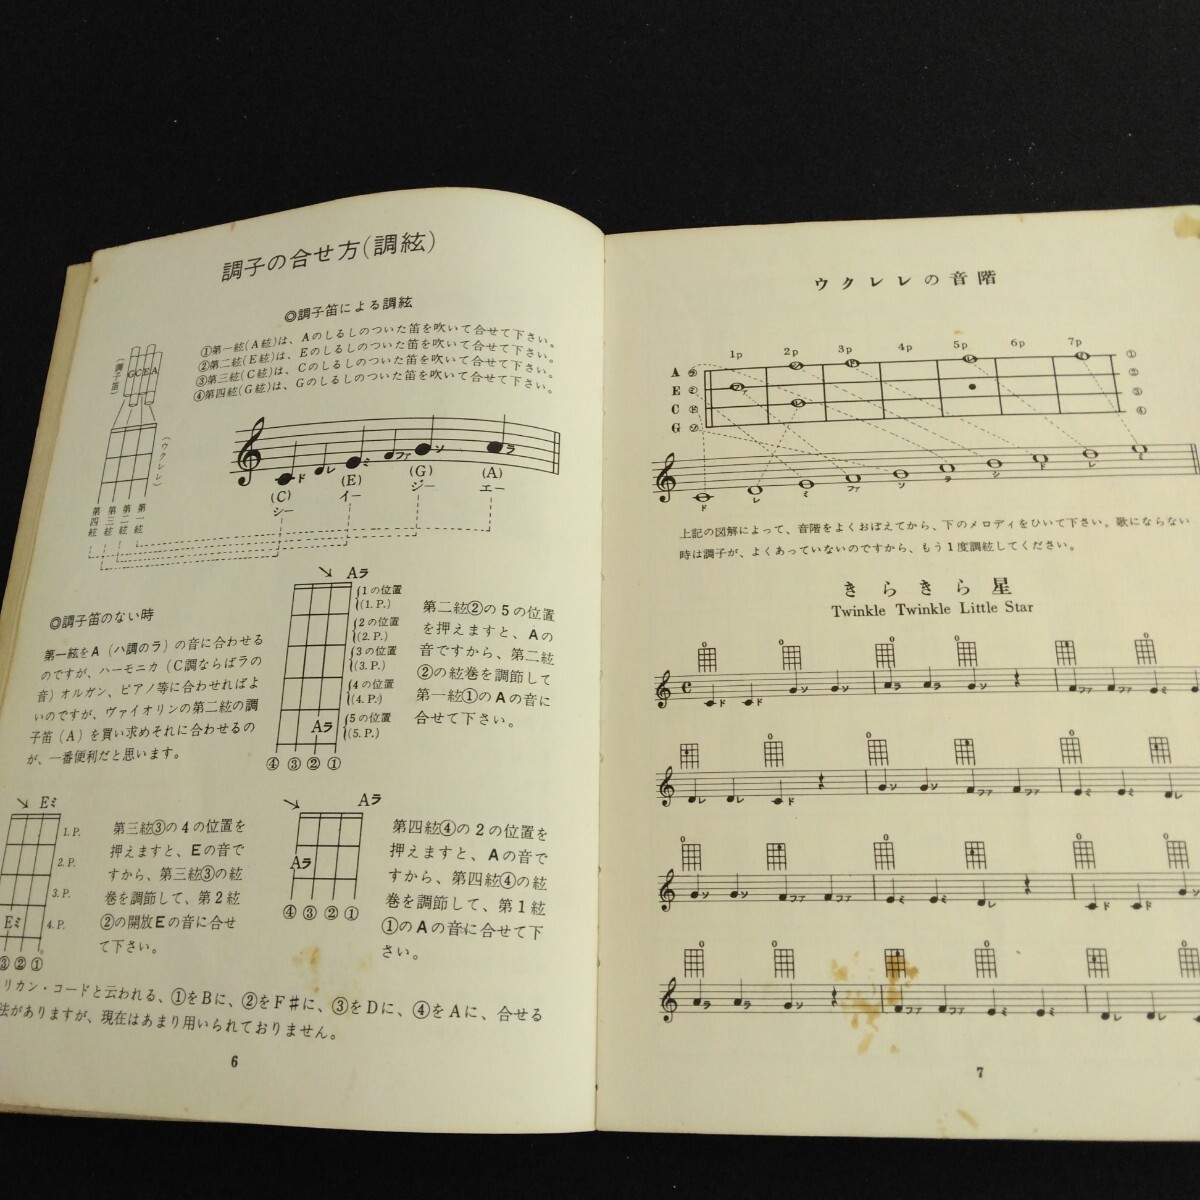 調子の合せ方(調絃)
◎調子笛による調絃
①第一絃(A絃)は、Aのしるしのついた笛を吹いて合せて下さい。
②第二絃(E絃)は、Eのしるしのついた笛を吹いて合せて下さい。
③第三絃(C絃)は、Cのしるしのついた笛を吹いて合せて下さい。
④第四絃(G絃)は、Gのしるしのついた笛を吹いて合せて下さい。
(調子笛)
GCEA
(ウクレレ)
第四絃
第三絃
第二絃
第一絃
ド レ ミ ファ ソ ラ
(C) (E) (G) (A)
シー イー ジー エー
◎調子笛のない時
第一絃をA(ハ調のラ)の音に合わせる
のですが、ハーモニカ(C調ならばラの
音)オルガン、ピアノ等に合わせればよ
いのですが、ヴァイオリンの第二絃の調
子笛(A)を買い求めそれに合わせるの
が、一番便利だと思います。
Aラ
1の位置
(1.P.)
2の位置
(2.P.)
3の位置
(3.P.)
4の位置
(4.P.)
5の位置
(5.P.)
Aラ
④③②①
第二絃②の5の位置
を押えますと、Aの
音ですから、第二絃
②の絃巻を調節して
第一絃①のAの音に
合せて下さい。
Eミ
1.P.
2.P.
3.P.
4.P.
Eミ
③②①
第三絃③の4の位置を
押えますと、Eの音で
すから、第三絃③の絃
巻を調節して、第2絃
②の開放Eの音に合せ
て下さい。
Aラ
Aラ
④③②①
第四絃④の2の位置を
押えますと、Aの音で
すから、第四絃④の絃
巻を調節して、第1絃
①のAの音に合せて下
さい。
リカン・コードと云われる、①をBに、②をF#に、③をDに、④をAに、合せる
法がありますが、現在はあまり用いられておりません。
6
ウクレレの音階
1p 2p 3p 4p 5p 6p 7p
A
E
C
G
①
②
③
④
ド レ ミ ファ ソ ラ シ ド レ ミ
上記の図解によって、音階をよくおぼえてから、下のメロディをひいて下さい。歌にならない
時は調子が、よくあっていないのですから、もう1度調絃してください。
きらきら星
Twinkle Twinkle Little Star
ド ド ソ ソ ラ ラ ソ ファ ファ ミ
レ レ ド ソ ソ ファ ファ ミ ミ レ
ソ ソ ファ ファ ミ ミ レ ド ド ソ
ラ ラ ソ ファ ファ ミ ミ レ レ ド
7